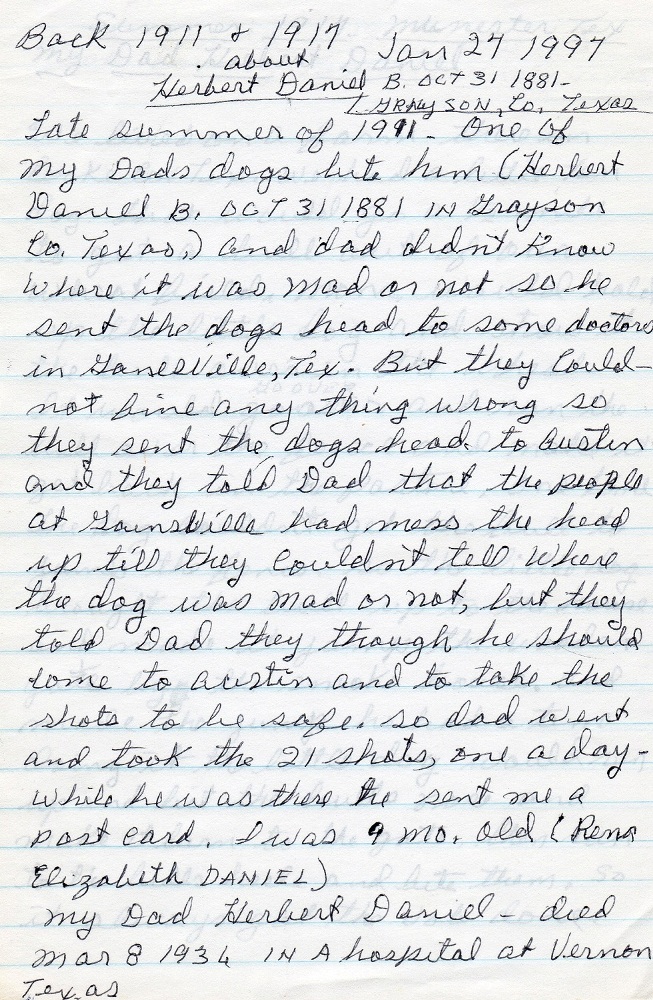 Back 1911 & 1917 Jan 27 1997
. about
Herbert Daniel B. OCT 31 1881-
GRAYSON, Co, Texas
Late summer of 1911. One of
my Dads dogs bite him (Herbert
Daniel B. OCT 31 1881 IN Grayson
Co. Texas.) and dad didn't Know
where it was mad or not so he
sent the dogs head to some doctors
in GanesVille, Tex. But they Could-
not fine any thing wrong so
they sent the dogs head. to Austin
and they told Dad that the people
at GainsVille had mess the head
up till they Couldn't tell where
the dog was mad or not, but they
told Dad they though he should
come to Austin and to take the
shots to be safe. so dad went
and took the 21 shots, one a day-
while he was there he sent me a
post card. I was 9 mo. old (Rena
Elizabeth DANIEL)
my Dad Herbert Daniel - died
Mar 8 1934 IN A hospital at Vernon
Texas